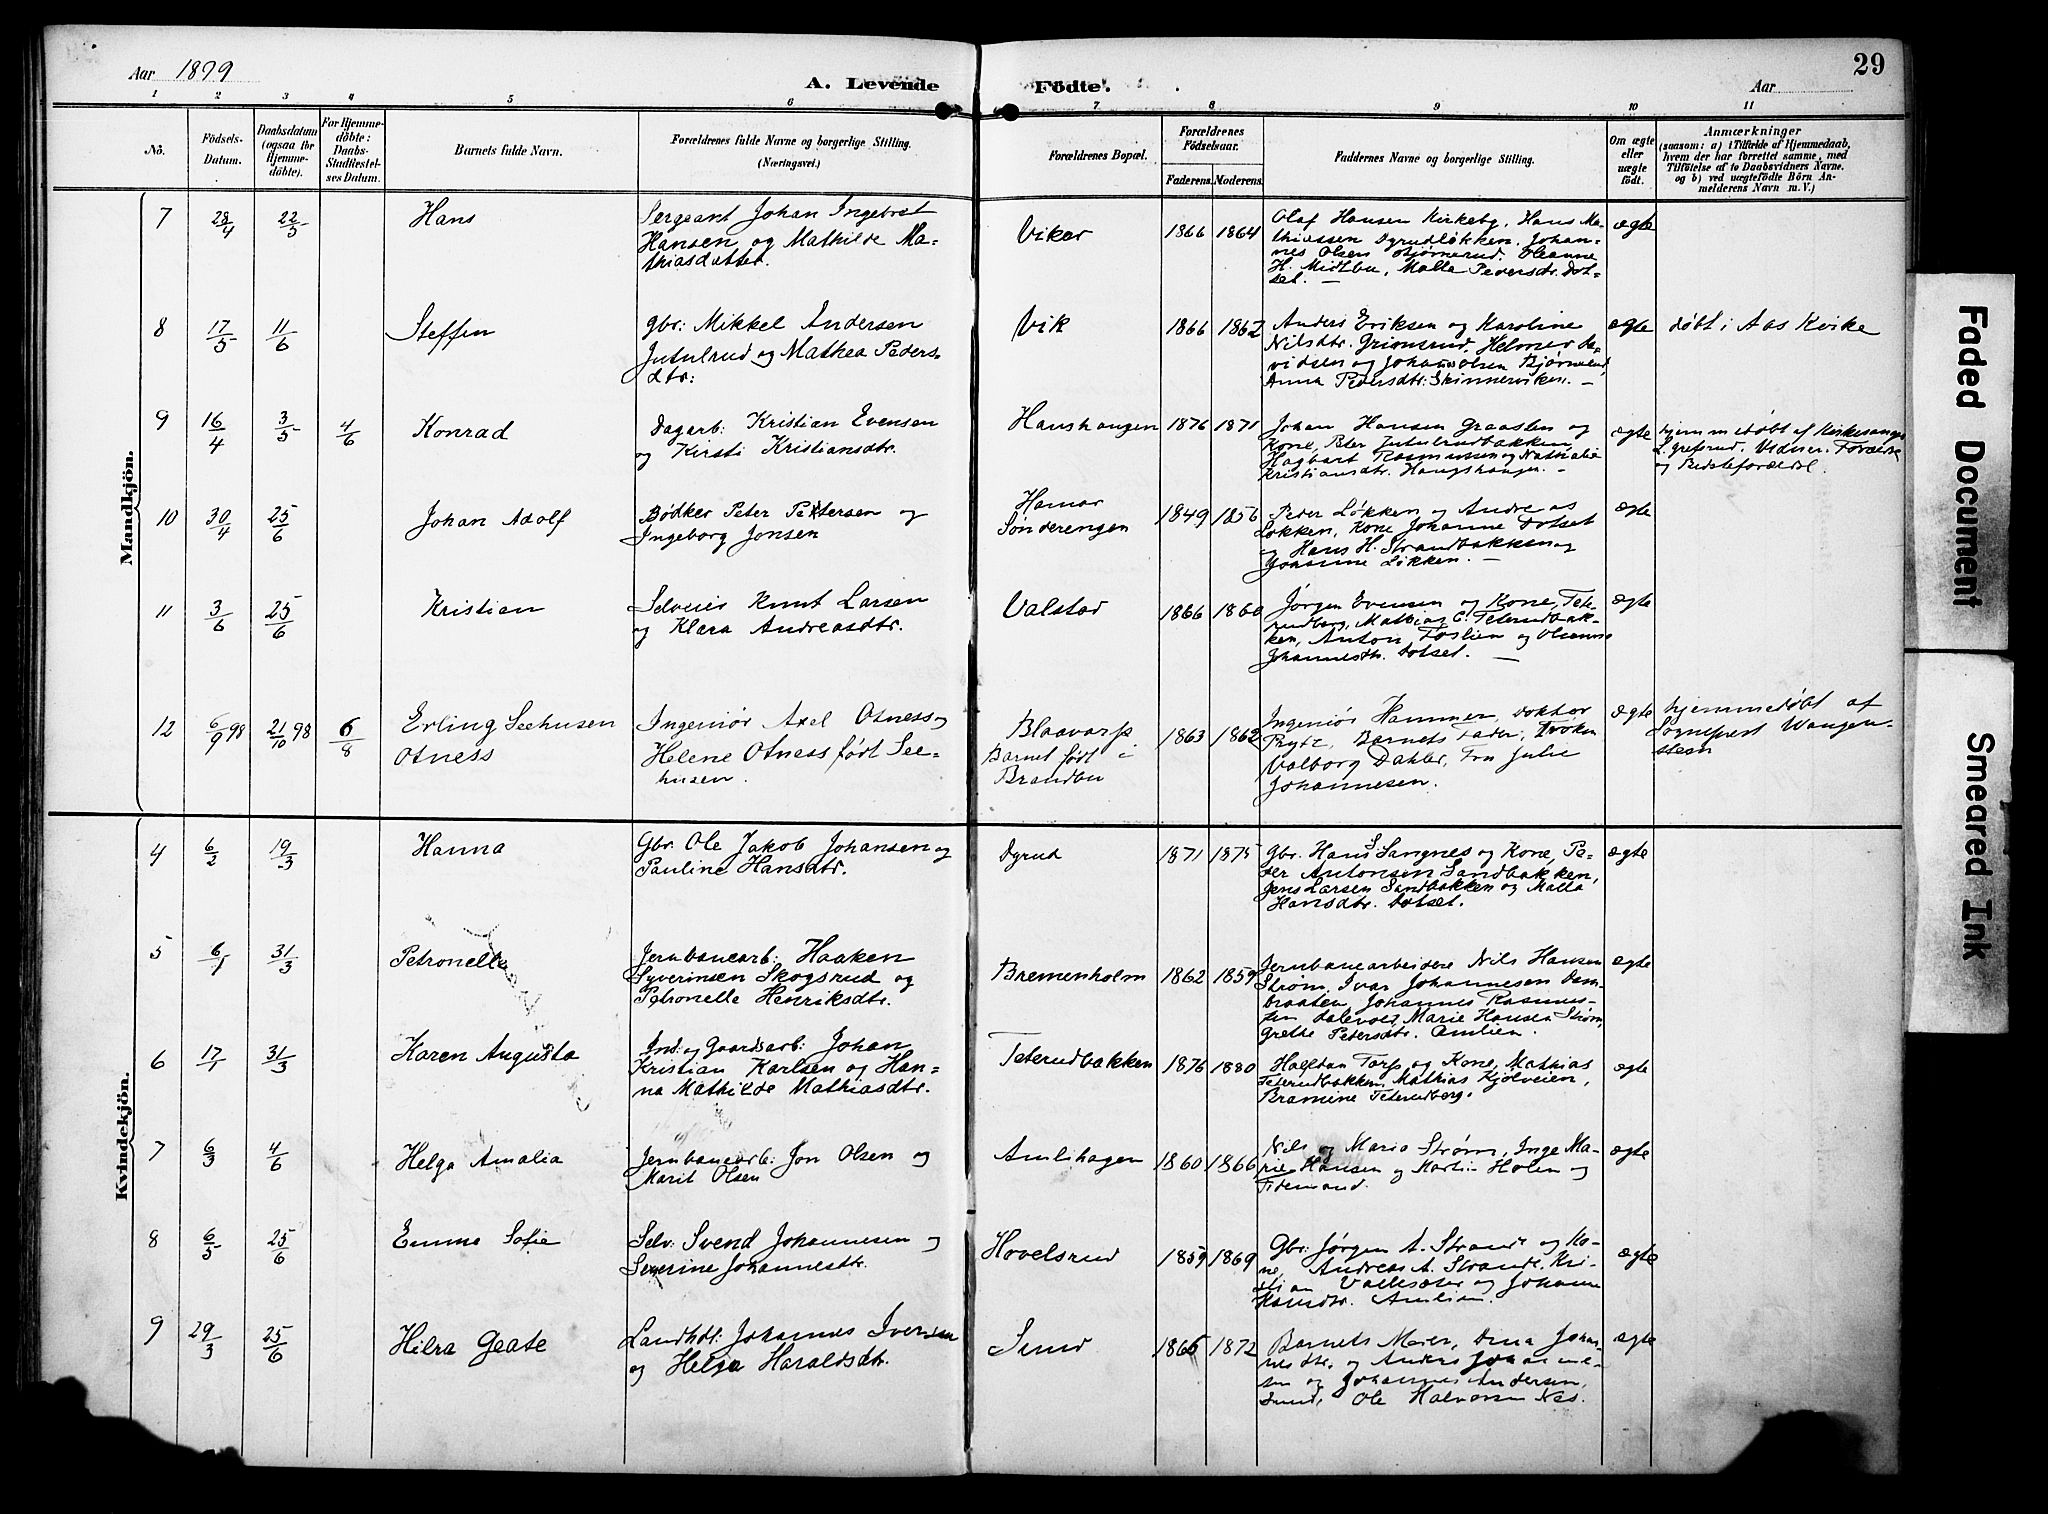 Aar 1899
A. Levende
Fødte.
Aar
29
1 2 3 4 5 6 7 8 9 10 11
No.
Födsels-
Datum.
Daabsdatum
(ogsaa for
Hjemme-
döbte).
For Hjemme-
döbte:
Daabs-
Stadfæstel-
ses Datum.
Barnets fulde Navn.
Forældrenes fulde Navne og borgerlige Stilling.
(Næringsvei.)
Forældrenes Bopæl.
Forældrenes
Födselsaar.
Faderens.
Moderens.
Faddernes Navne og borgerlige Stilling.
Om ægte
eller
uægte
födt.
Anmærkninger
(saasom: a) i Tilfælde af Hjemmedaab,
hvem der har forrettet samme, med
Tilföielse af to Daabsvidners Navne.
og b) ved uægtefödte Börn An-
melderens Navn m. V.)
Mandkjön.
7 28/4 22/5 Hans
Sergeant Johan Ingebret
Hansen og Mathilde Ma-
thiasdatter.
Viker 1866 1864
Olaf Hansen Kirkeby, Hans Ma-
thiassen Dyrudløkken, Johan-
nes Olsen Bjørnerud, Oleanne
H. Midtbu, Malle Pedersdr. Dot-
set. —
ægte
8 17/5 11/6 Steffen
Gbr: Mikkel Andersen
Jutulrud og Mathea Peders-
dtr:
Vik 1866 1862
Anders Eriksen og Karoline
Nilsdtr. Grimsrud, Helmer Da-
vidsen og Johan Olsen Bjørnerud,
Anna Pedersdtr: Skinnerviken. —
ægte døbt i Aas Kirke
9 16/4 3/5 4/6 Konrad
Dagarb: Kristian Evensen
og Kirsti Kristiansdtr.
Haugshaugen 1876 1871
Johan Hansen Graasten og
Kone, Peter Jutulrudbakken,
Hagbart Rasmussen og Nathalie
Kristiansdtr. Haugshaugen. —
ægte hjemmedøbt af Kirkesanger
L. Grefsrud. Vidner: Forældre
og Bedsteforældre.
10 30/4 25/6 Johan Adolf
Bødker Peter Pettersen og
Ingeborg Jonsen
Hamar
Sønderengen 1849 1856
Peder Løkken og Andreas
Løkken, Kone Johanne Dotset
og Hans H. Strandbakken og
Johanne Løkken. —
ægte
11 3/6 25/6 Kristian
Selveier Knut Larsen
og Klara Andreasdtr.
Valstad 1866 1860
Jørgen Evensen og Kone, Tete-
rudberg, Mathias C. Teterudbak-
ken, Anton Foslien og Oleanne
Johannesdtr. Dotset. —
ægte
12 6/9 98 21/10 98 6/8 Erling Seehusen
Otness
Ingeniør Axel Otness og
Helene Otness født See-
husen.
Blaavarp
Barnet født i
Brandbu 1863 1862
Ingeniør Hammer, Doktor
Prytz, Barnets Fader, Frøken
Valborg Dahler, Fru Julie
Johannesen.
ægte hjemmedøbt af
Sogneprest Wangen-
steen
Kvindekjön.
4 6/2 19/3 Hanna
Gbr. Ole Jakob Johansen og
Pauline Hansdtr.
Dyrud 1871 1875
Gbr. Hans S. Sangnes og Kone, Pe-
der Antonsen Sandbakken,
Jens Larsen Sandbakken og Malla
Hansdtr. Dotset.
ægte
5 6/1 31/3 Petronelle
Jernbanearb: Haaken
Syverinsen Skogsrud og
Petronelle Henriksdtr.
Bremenholm 1862 1859
Jernbanearbeidere Nils Hansen
Strøm, Ivar Johannesen Dem-
braaten, Johannes Rasmus-
sen Dalevold, Marie Hansen Strøm,
Grethe Petersdtr. Amlien.
ægte
6 17/1 31/3 Karen Augusta
Ind: og Gaardsarb: Johan
Kristian Karlsen og Han-
na Mathilde Mathiasdtr.
Teterudbakken 1876 1880
Halfdan Torp og Kone, Mathias
Teterudbakken, Mathias Kjølveien,
Bramine Teterudberg.
ægte
7 6/3 4/6 Helga Amalia
Jernbanearb: Jon Olsen og
Marit Olsen
Amlihagen 1860 1866
Nils og Maria Strøm, Inge Ma-
rie Hansen og Martin Holen og
Tidemand.
ægte
8 6/5 25/6 Emma Sofie
Selv: Svend Johannesen og
Severine Johannesdtr.
Hovelsrud 1859 1869
Gbr: Jørgen A. Strande og Ko-
ne, Andreas A. Strande, Kri-
stian Vallesæter og Johanne
Hansdtr. Amlien.
ægte
9 29/3 25/6 Hilda Geate
Landhdl: Johannes Iversen
og Helga Haraldsdtr.
Sund 1865 1872
Barnets Moder, Dina Johan-
nesdtr. og Anders Johanne-
sen og Johannes Andersen,
Sund, Ole Halvorsen Næs.
ægte
Faded Document
Smeared Ink